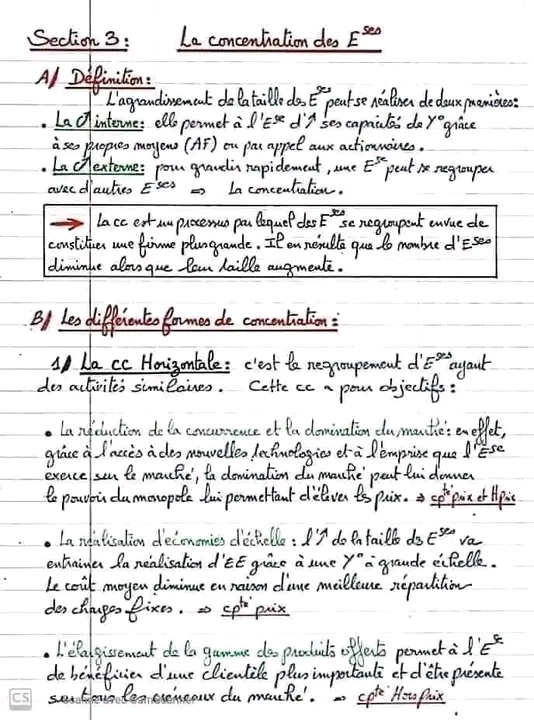 Section 3 : La concentration des Eses
A/ Définition :
L'agrandissement de la taille des Eses peut se réaliser de deux manières :
• La C↗ interne : elle permet à l'Ese d'↗ ses capacités de Y° grâce
à ses propres moyens (AF) ou par appel aux actionnaires.
• La C↗ externe : pour grandir rapidement, une Ese peut se regrouper
avec d'autres Eses ⇒ La concentration.
→ La cc est un processus par lequel des Eses se regroupent en vue de
constituer une firme plus grande. Il en résulte que le nombre d'Eses
diminue alors que leur taille augmente.
B/ Les différentes formes de concentration :
1/ La cc Horizontale : c'est le regroupement d'Eses ayant
des activités similaires. Cette cc a pour objectifs :
• La réduction de la concurrence et la domination du marché : en effet,
grâce à l'accès à des nouvelles technologies et à l'emprise que l'Ese
exerce sur le marché, la domination du marché peut lui donner
le pouvoir du monopole lui permettant d'élever les prix. ⇒ cpté prix et H prix
• La réalisation d'économies d'échelle : l'↗ de la taille ds Eses va
entrainer la réalisation d'EE grâce à une Y° à grande échelle.
Le coût moyen diminue en raison d'une meilleure répartition
des charges fixes. ⇒ cpté prix
• L'élargissement de la gamme des produits offerts permet à l'Ese
de bénéficier d'une clientèle plus importante et d'être présente
sur tous les créneaux du marché. ⇒ cpté Hors prix
CS